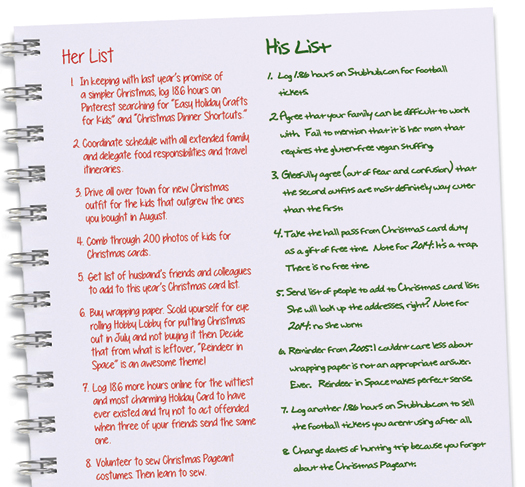 Her List
1. In keeping with last year's promise of
a simpler Christmas, log 186 hours on
Pinterest searching for "Easy Holiday Crafts
for Kids" and "Christmas Dinner Shortcuts."
2. Coordinate schedule with all extended family
and delegate food responsibilities and travel
itineraries.
3. Drive all over town for new Christmas
outfit for the kids that outgrew the ones
you bought in August.
4. Comb through 200 photos of kids for
Christmas cards.
5. Get list of husband's friends and colleagues
to add to this year's Christmas card list.
6. Buy wrapping paper. Scold yourself for eye
rolling Hobby Lobby for putting Christmas
out in July and not buying it then. Decide
that from what is leftover, "Reindeer in
Space" is an awesome theme!
7. Log 186 more hours online for the wittiest
and most charming Holiday Card to have
ever existed and try not to act offended
when three of your friends send the same
one.
8. Volunteer to sew Christmas Pageant
costumes. Then learn to sew.
His List
1. Log 1.86 hours on Stubhub.com for football
tickets.
2. Agree that your family can be difficult to work
with. Fail to mention that it is her mom that
requires the gluten-free vegan stuffing.
3. Gleefully agree (out of fear and confusion) that
the second outfits are most definitely way cuter
than the first.
4. Take the hall pass from Christmas card duty
as a gift of free time. Note for 2014: It's a trap.
There is no free time.
5. Send list of people to add to Christmas card list.
She will look up the addresses, right? Note for
2014: no she won't.
6. Reminder from 2005: I couldn't care less about
wrapping paper is not an appropriate answer.
Ever. Reindeer in Space makes perfect sense.
7. Log another 1.86 hours on Stubhub.com to sell
the football tickets you aren't using after all.
8. Change dates of hunting trip because you forgot
about the Christmas Pageant.